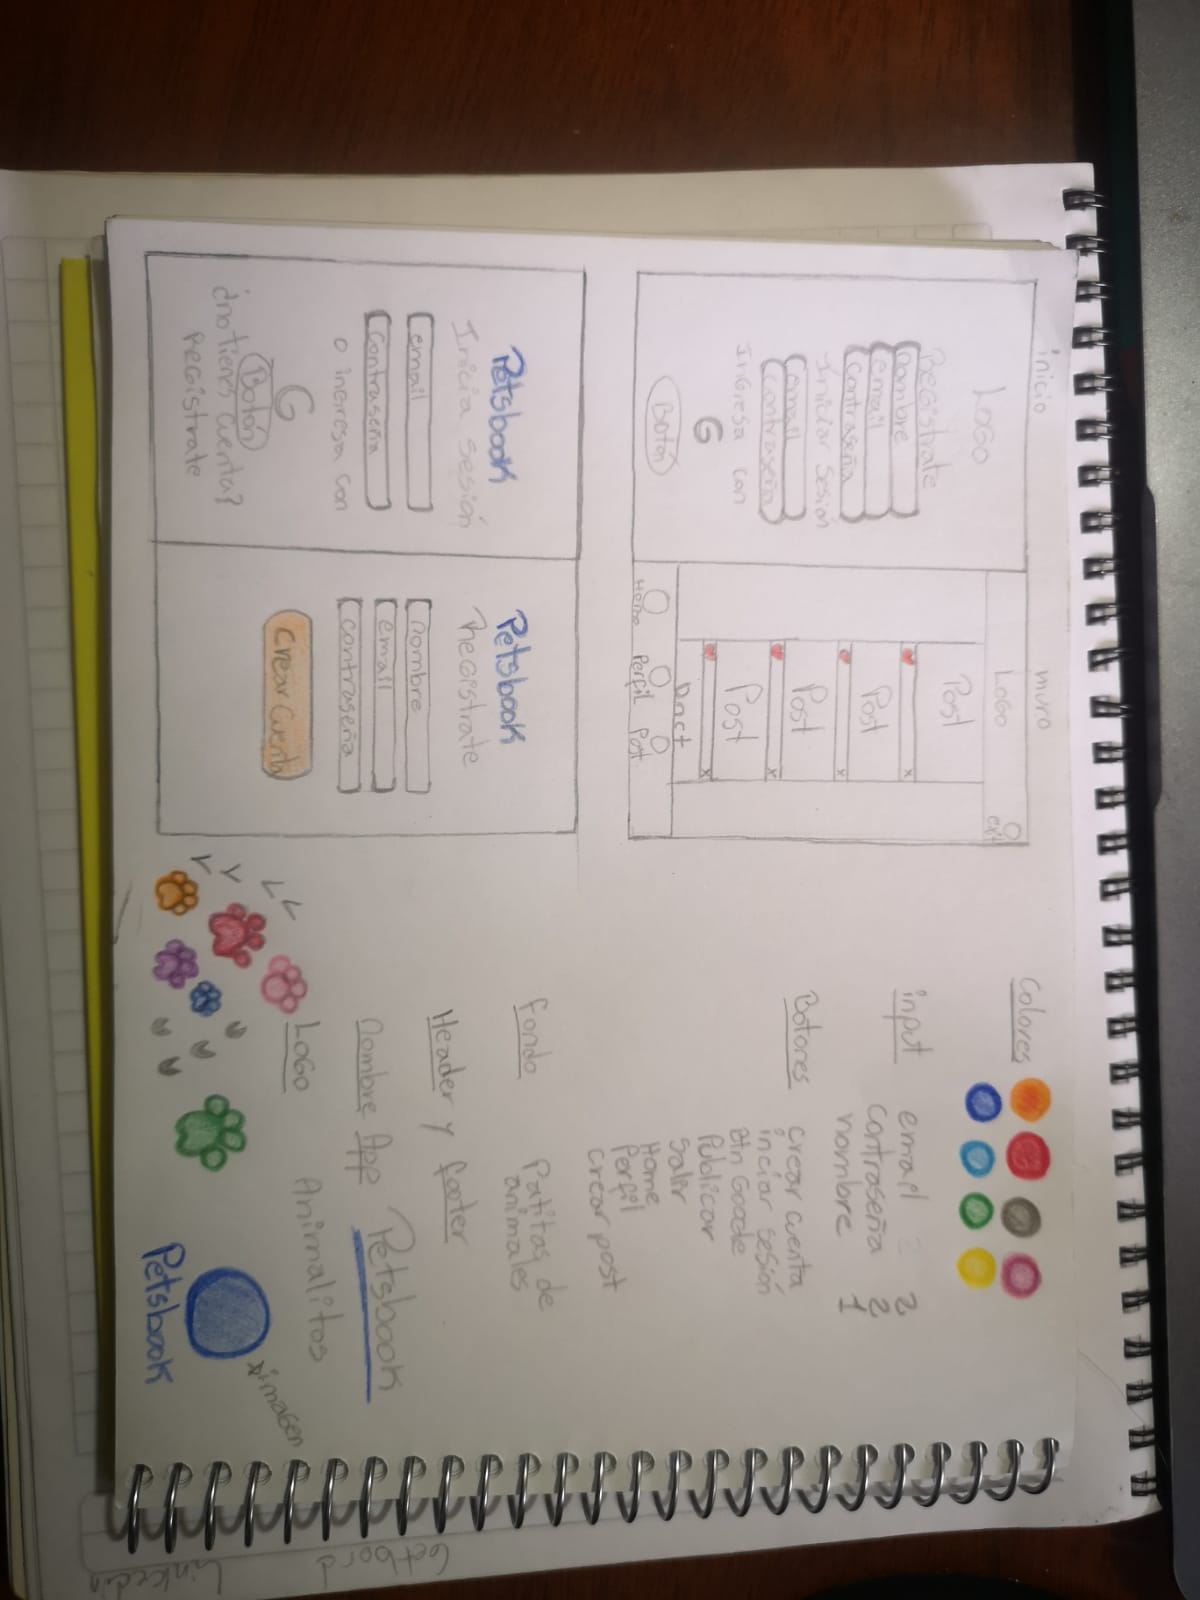 inicio
Logo
Registrate
nombre
email
contraseña
Iniciar sesión
email
contraseña
Ingresa con
G
Botón
muro
Logo
exit
Post
x
Post
x
Post
x
Post
x
Post
Home Perfil Post
Petsbook
Inicia sesión
email
contraseña
o ingresa con
G
Botón
¿no tienes cuenta?
Registrate
Petsbook
Registrate
nombre
email
contraseña
Crear Cuenta
Colores
input
email 2
contraseña 2
nombre 1
Botones
crear cuenta
iniciar sesión
Btn Google
Publicar
Salir
Home
Perfil
crear post
fondo
Patitas de
animales
Header y footer
nombre App Petsbook
Logo Animalitos
x imagen
Petsbook
Linkedin